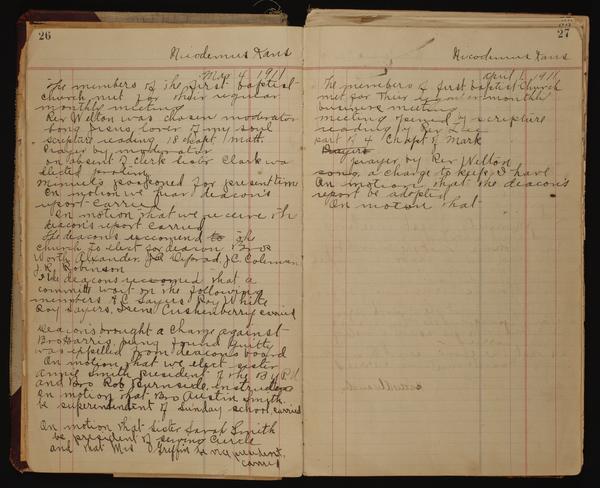 26
Nicodemus Kans
Mar 4 1911
The members of the first baptist
church met for their regular
monthly meeting
Rev Welton was chosen moderator
song Jesus, lover of my soul
scripture reading 18 chapt. Matt.
Prayer by moderator
on absent of clerk sister Clark wa
elected protem
Minuets postponed for present time
On motion we hear deacon's
report carried
On motion that we receive the
deacon's report carried
The deacon's reccomend to the
church to elect for deacon Bros
Worth Alexander, J.C. Coleman
J.R. Robinson
The deacons reccomed that a
committe wait on the following
members H.C. Sayers, Roy White
Roy Sayers, Irene Cushenberry carried
Deacon's brought a charge against
Bro Harris, being found guilty
was expelled from deacon's board
On motion that we elect sister
Annie Smith president of the B.Y.P.U.
and Bro Rob Burnside, Instructor
On motion that Bro Austin Smith.
be superendent of Sunday school, carried
On motion that sister Sarah Smith
be president of sewing circle
and that Mrs Griffin be president,
carried
27
Nicodemus Kans
April 1, 1911
The members of first baptist Church
met for their regular monthly
business meeting
meeting opened by scripture
reading by Rev Lee
part of 4 Chapt of Mark
Prayers
prayer by Rev Welton
song, a charge to keep I have
On motion that the deacon's
report be adopted
On motion that